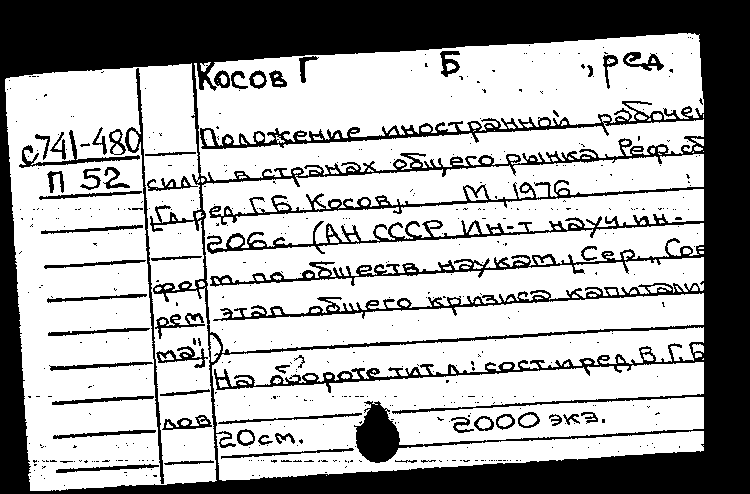 Косов Г Б , ред.
с741-480
П 52
Положение иностранной рабочей
силы в странах общего рынка. Реф. сб
[Гл. ред. Г.Б. Косов]. М., 1976.
206 с. (АН СССР. Ин-т науч. ин-
форм. по обществ. наукам. [Сер. „Сов
рем этап общего кризиса капитали
ма"]).
На обороте тит. л.: сост. и ред. В.Г. Б
лов
20 см. 2000 экз.